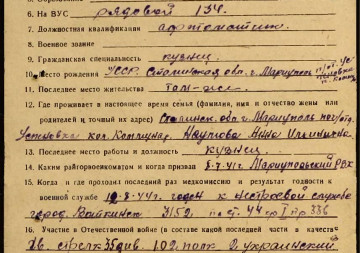 6. На ВУС рядовой 134.
7. Должностная квалификация автоматчик
8. Военное звание
9. Гражданская специальность кузнец
10. Место рождения УССР. Сталинская обл. г. Мариуполь
11. Последнее место жительства там-же
12. Где проживает в настоящее время семья (фамилия, имя и отчество жены или
родителей и точный их адрес) Сталинск. обл. г. Мариуполь
кол. Коммунар. Наумова Анна Ильинична
13. Последнее место работы и должность кузнец
14. Каким райгорвоенкоматом и когда призван 8-7.41г. Мариупольский РВК
15. Когда и где проходил последний раз медкомиссию и результат годности к
военной службе 44г годен к нестроевой службе
город 3152 по ст. 44 гр I пр 336
16. Участие в Отечественной войне (в составе какой последней части и в качестве
Да. стрелк 35 див. 102 полк 2 украинский